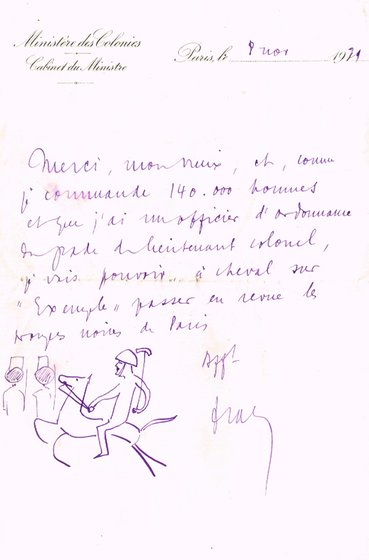 Ministère des Colonies
Cabinet du Ministre
Paris, le 8 nov 1931
Merci, mon vieux, et, comme
je commande 140.000 hommes
et que j'ai un officier d'ordonnance
du grade de lieutenant colonel,
je vais pouvoir... à cheval sur
"Exemple" passer en revue les
troupes noires de Paris